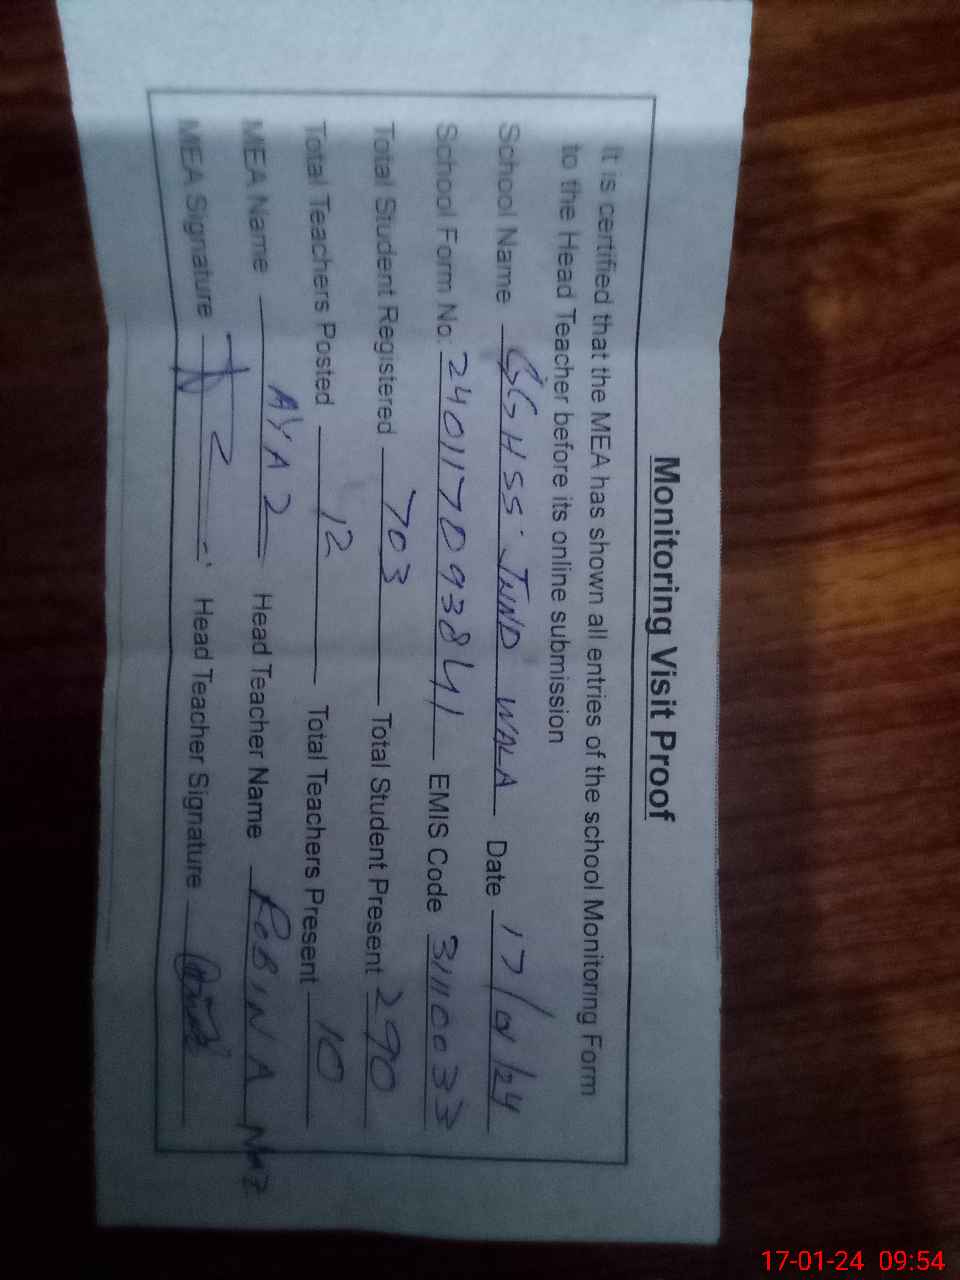 Monitoring Visit Proof
It is certified that the MEA has shown all entries of the school Monitoring Form
to the Head Teacher before its online submission
School Name GGHSS JWND WALA Date 17/01/24
School Form No: 240117093841 EMIS Code 31110033
Total Student Registered 703 Total Student Present 290
Total Teachers Posted 12 Total Teachers Present 10
MEA Name AYAZ Head Teacher Name ROBINA NAZ
MEA Signature Head Teacher Signature
17-01-24 09:54